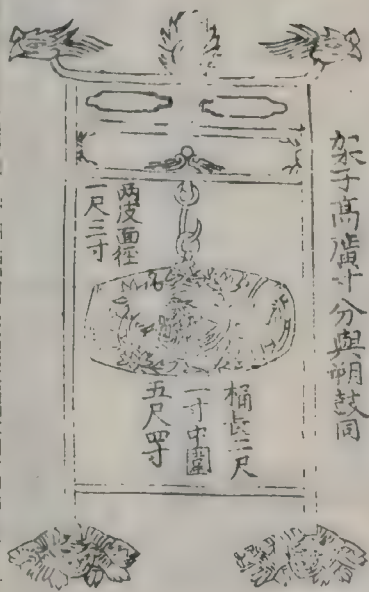 架子高廣寸分與朔鼓同
兩皮面徑
一尺三寸
桶長二尺
一寸中圍
五尺四寸